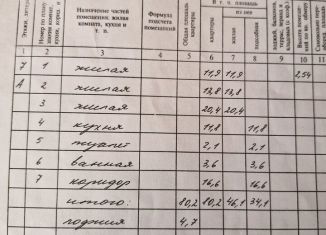 Назначение частей помещения: жилая комната, кухня и т. п.
Формула подсчета помещений
Общая площадь квартиры
В т. ч. площадь
из нее
квартиры
жилая
подсобная
1 2 3 4 5 6 7 8 9 10 11
7 1 жилая 11,9 11,9 2,54
А 2 жилая 13,8 13,8
3 жилая 20,4 20,4
4 кухня 11,8 11,8
5 туалет 2,1 2,1
6 ванная 3,6 3,6
7 коридор 16,6 16,6
итого: 80,2 80,2 46,1 34,1
лоджия 4,7